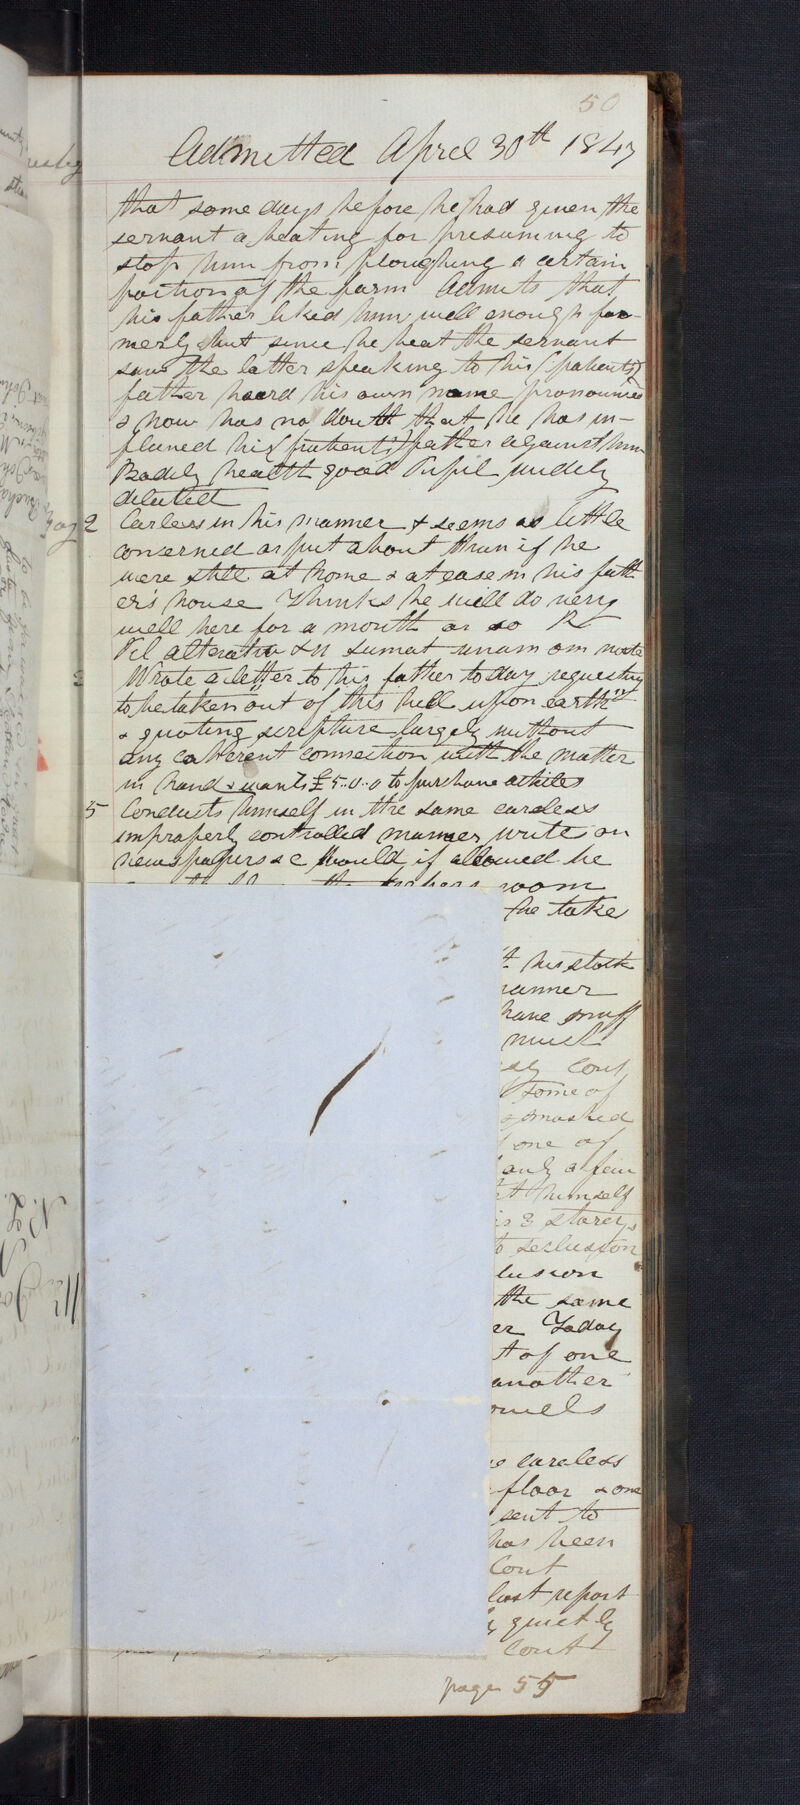 50
Admitted April 30th 1847
that some days before he had given the
servant a beating for presuming to
stop him from ploughing a certain
portion of the farm Admits that
his father liked him well enough for-
merly but since he beat the servant
saw the latter speaking to his (patients)
father heard his own name pronounced
& now has no doubt that he has in-
flamed his (patients) father against him
Bodily health good Pupil widely
dilated
May 2 Careless in his manner & seems as little
concerned or put about than if he
were still at home & at ease in his fath
er's house Thinks he will do very
well here for a month or so R
Pil sumat unam om nocte
3 Wrote a letter to his father to day requesting
to be taken "out of this hell upon earth"
& quoting scripture largely without
any coherent connection with the matter
in hand & wants £5..0..0 to purchase
5 Conducts himself in the same careless
improperly controlled manner, writes on
newspapers &c Would if allowed be
room
he take
his stock
manner
have snuff
much
Cont
some of
smashed
one of
only a few
himself
is 3 storeys
to seclusion
lusion
the same
er Today
t of one
another
owels
careless
floor & one
sent to
has been
Cont
last report
quietly
Cont
page 55